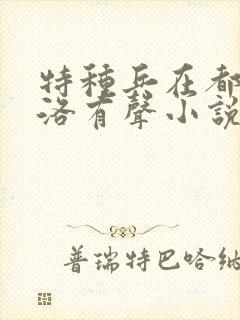 特種兵在都
洛有聲小說
普瑞特巴哈納